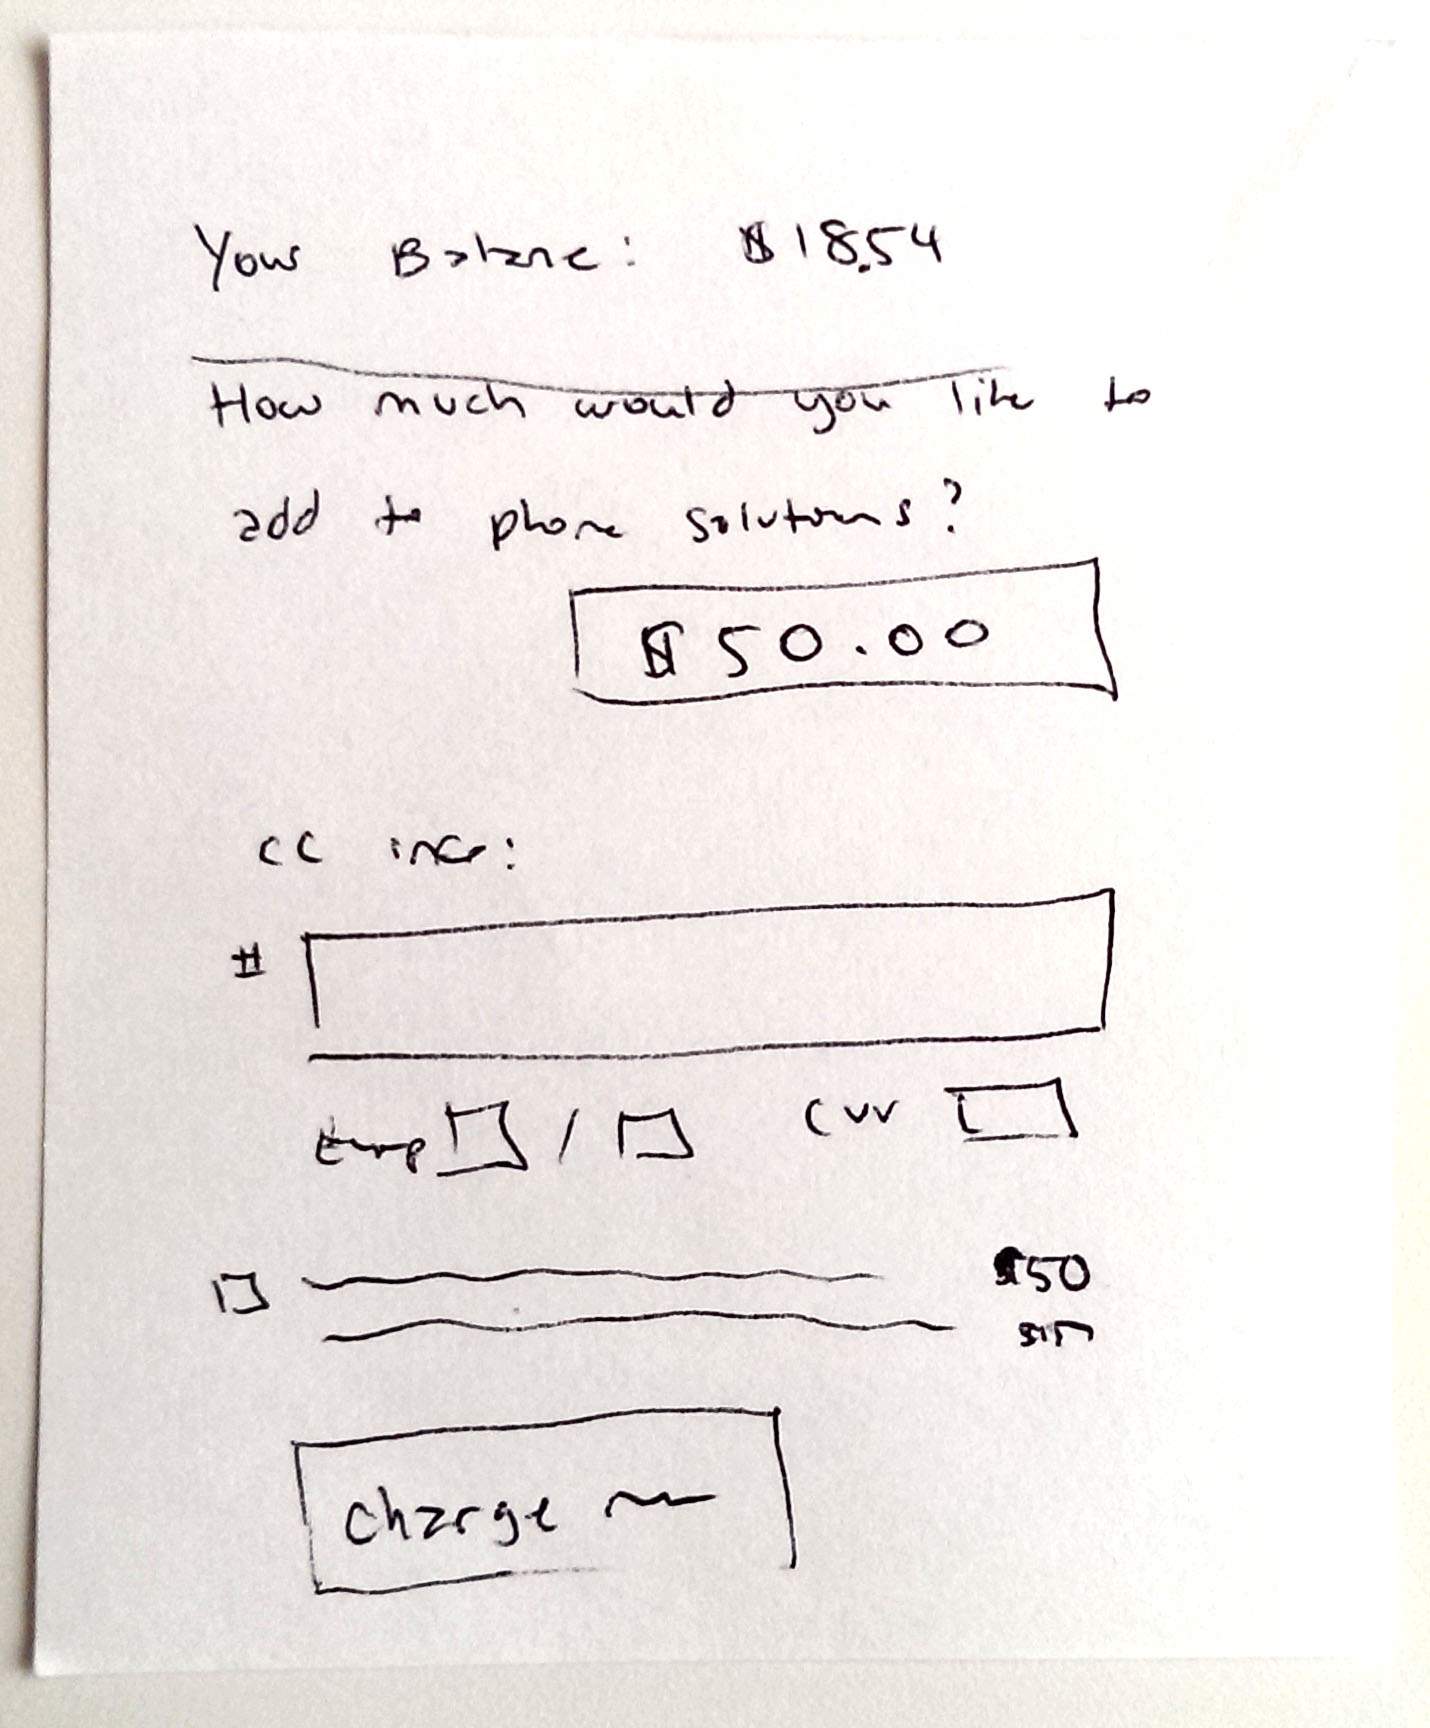 Your Balance: $18.54
How much would you like to
add to phone solutions?
$50.00
CC info:
#
/ CVV
$50
Charge